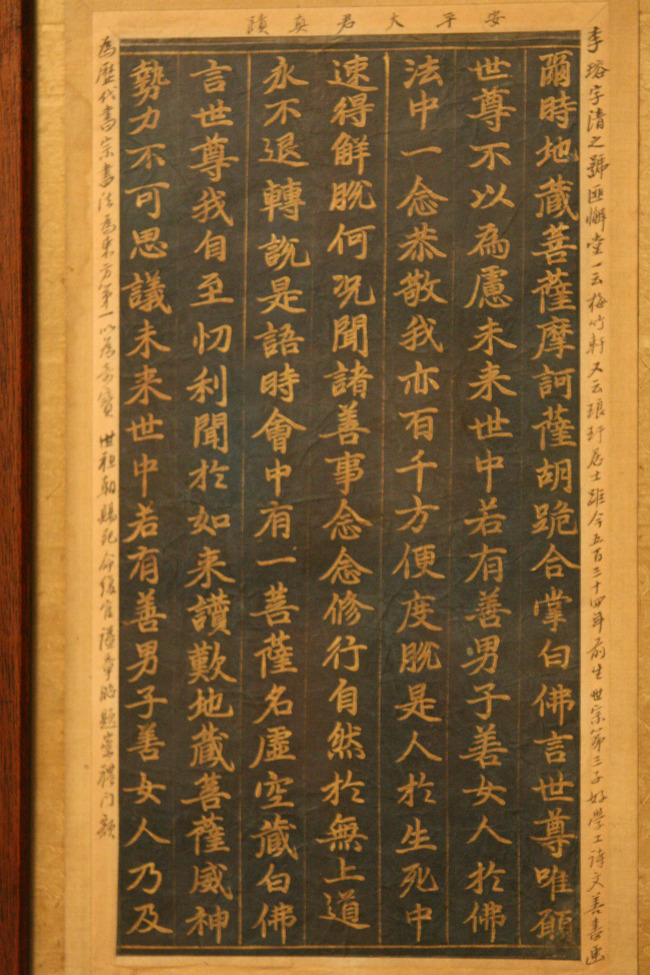 安平大君眞蹟
李瑢字淸之號匪懈堂一云梅竹軒又云琅玕居士距今五百三十四年前生世宗第三子好學工詩文善書畫
爾時地藏菩薩摩訶薩胡跪合掌白佛言世尊唯願
世尊不以為慮未来世中若有善男子善女人於佛
法中一念恭敬我亦百千方便度脫是人於生死中
速得解脫何况聞諸善事念念修行自然於無上道
永不退轉說是語時會中有一菩薩名虛空藏白佛
言世尊我自至忉利聞於如来讚歎地藏菩薩威神
勢力不可思議未来世中若有善男子善女人乃及
為歷代書宗書法為東方第一以為奇寶 世祖朝賜死 命復官 謚章昭 題崇禮門額